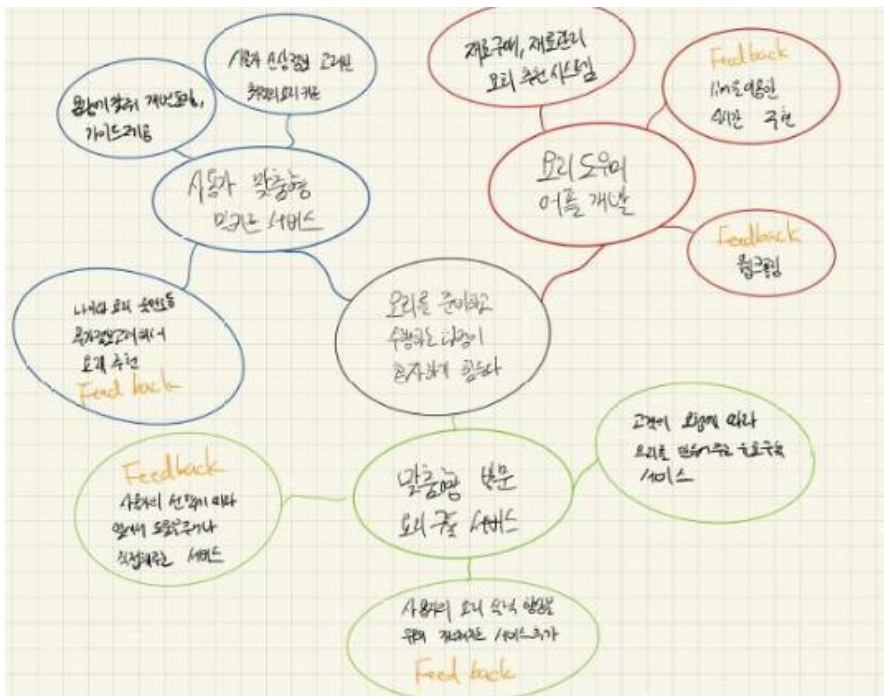 사용자 인상정보 고려한
취향의 요리 키운
개인포밍,
가이드제공
사용자 맞춤형
밀키트 서비스
나이와 요리 숙련도등
추가정보고려해서
요리 추천
Feed back
재료구매, 재료관리
요리 추천 시스템
Feedback
실시간 추천
요리 도우미
어플 개발
Feedback
웹크롤링
요리를 준비하고
수행하는 과정이
혼자하기 힘들다
맞춤형 방문
요리 구독 서비스
고객의 요청에 따라
요리를 만들어주는 유료구독
서비스
Feedback
사용자의 선택에 따라
옆에서 도움을주거나
직접해주는 서비스
사용자의 요리 숙식 향상을
위해 서비스추가
Feed back